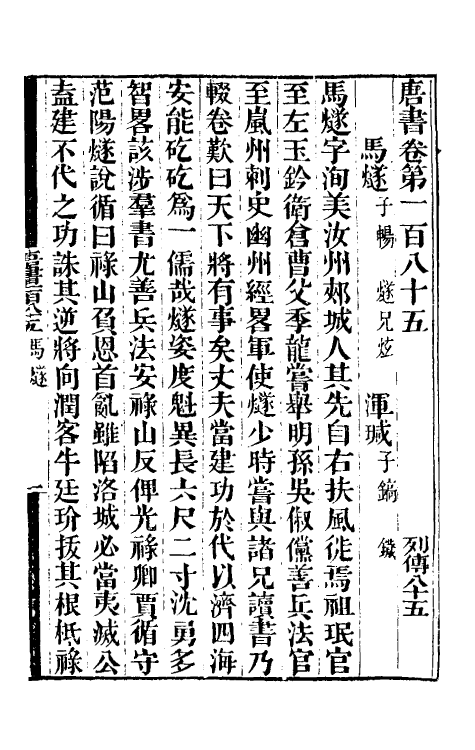 唐書卷第一百八十五
列傳八十五
馬燧 子暢 燧兄炫 渾瑊 子鎬 鐬
馬燧字洵美汝州郟城人其先自右扶風徙焉祖珉官
至左玉鈐衛倉曹父季龍嘗舉明孫吳俶儻善兵法官
至嵐州刺史幽州經畧軍使燧少時嘗與諸兄讀書乃
輟卷歎曰天下將有事矣丈夫當建功於代以濟四海
安能矻矻爲一儒哉燧姿度魁異長六尺二寸沈勇多
智畧該涉羣書尤善兵法安祿山反俾光祿卿賈循守
范陽燧說循曰祿山負恩首亂雖陷洛城必當夷滅公
盍建不代之功誅其逆將向潤客牛廷玠拔其根柢祿
馬燧
一